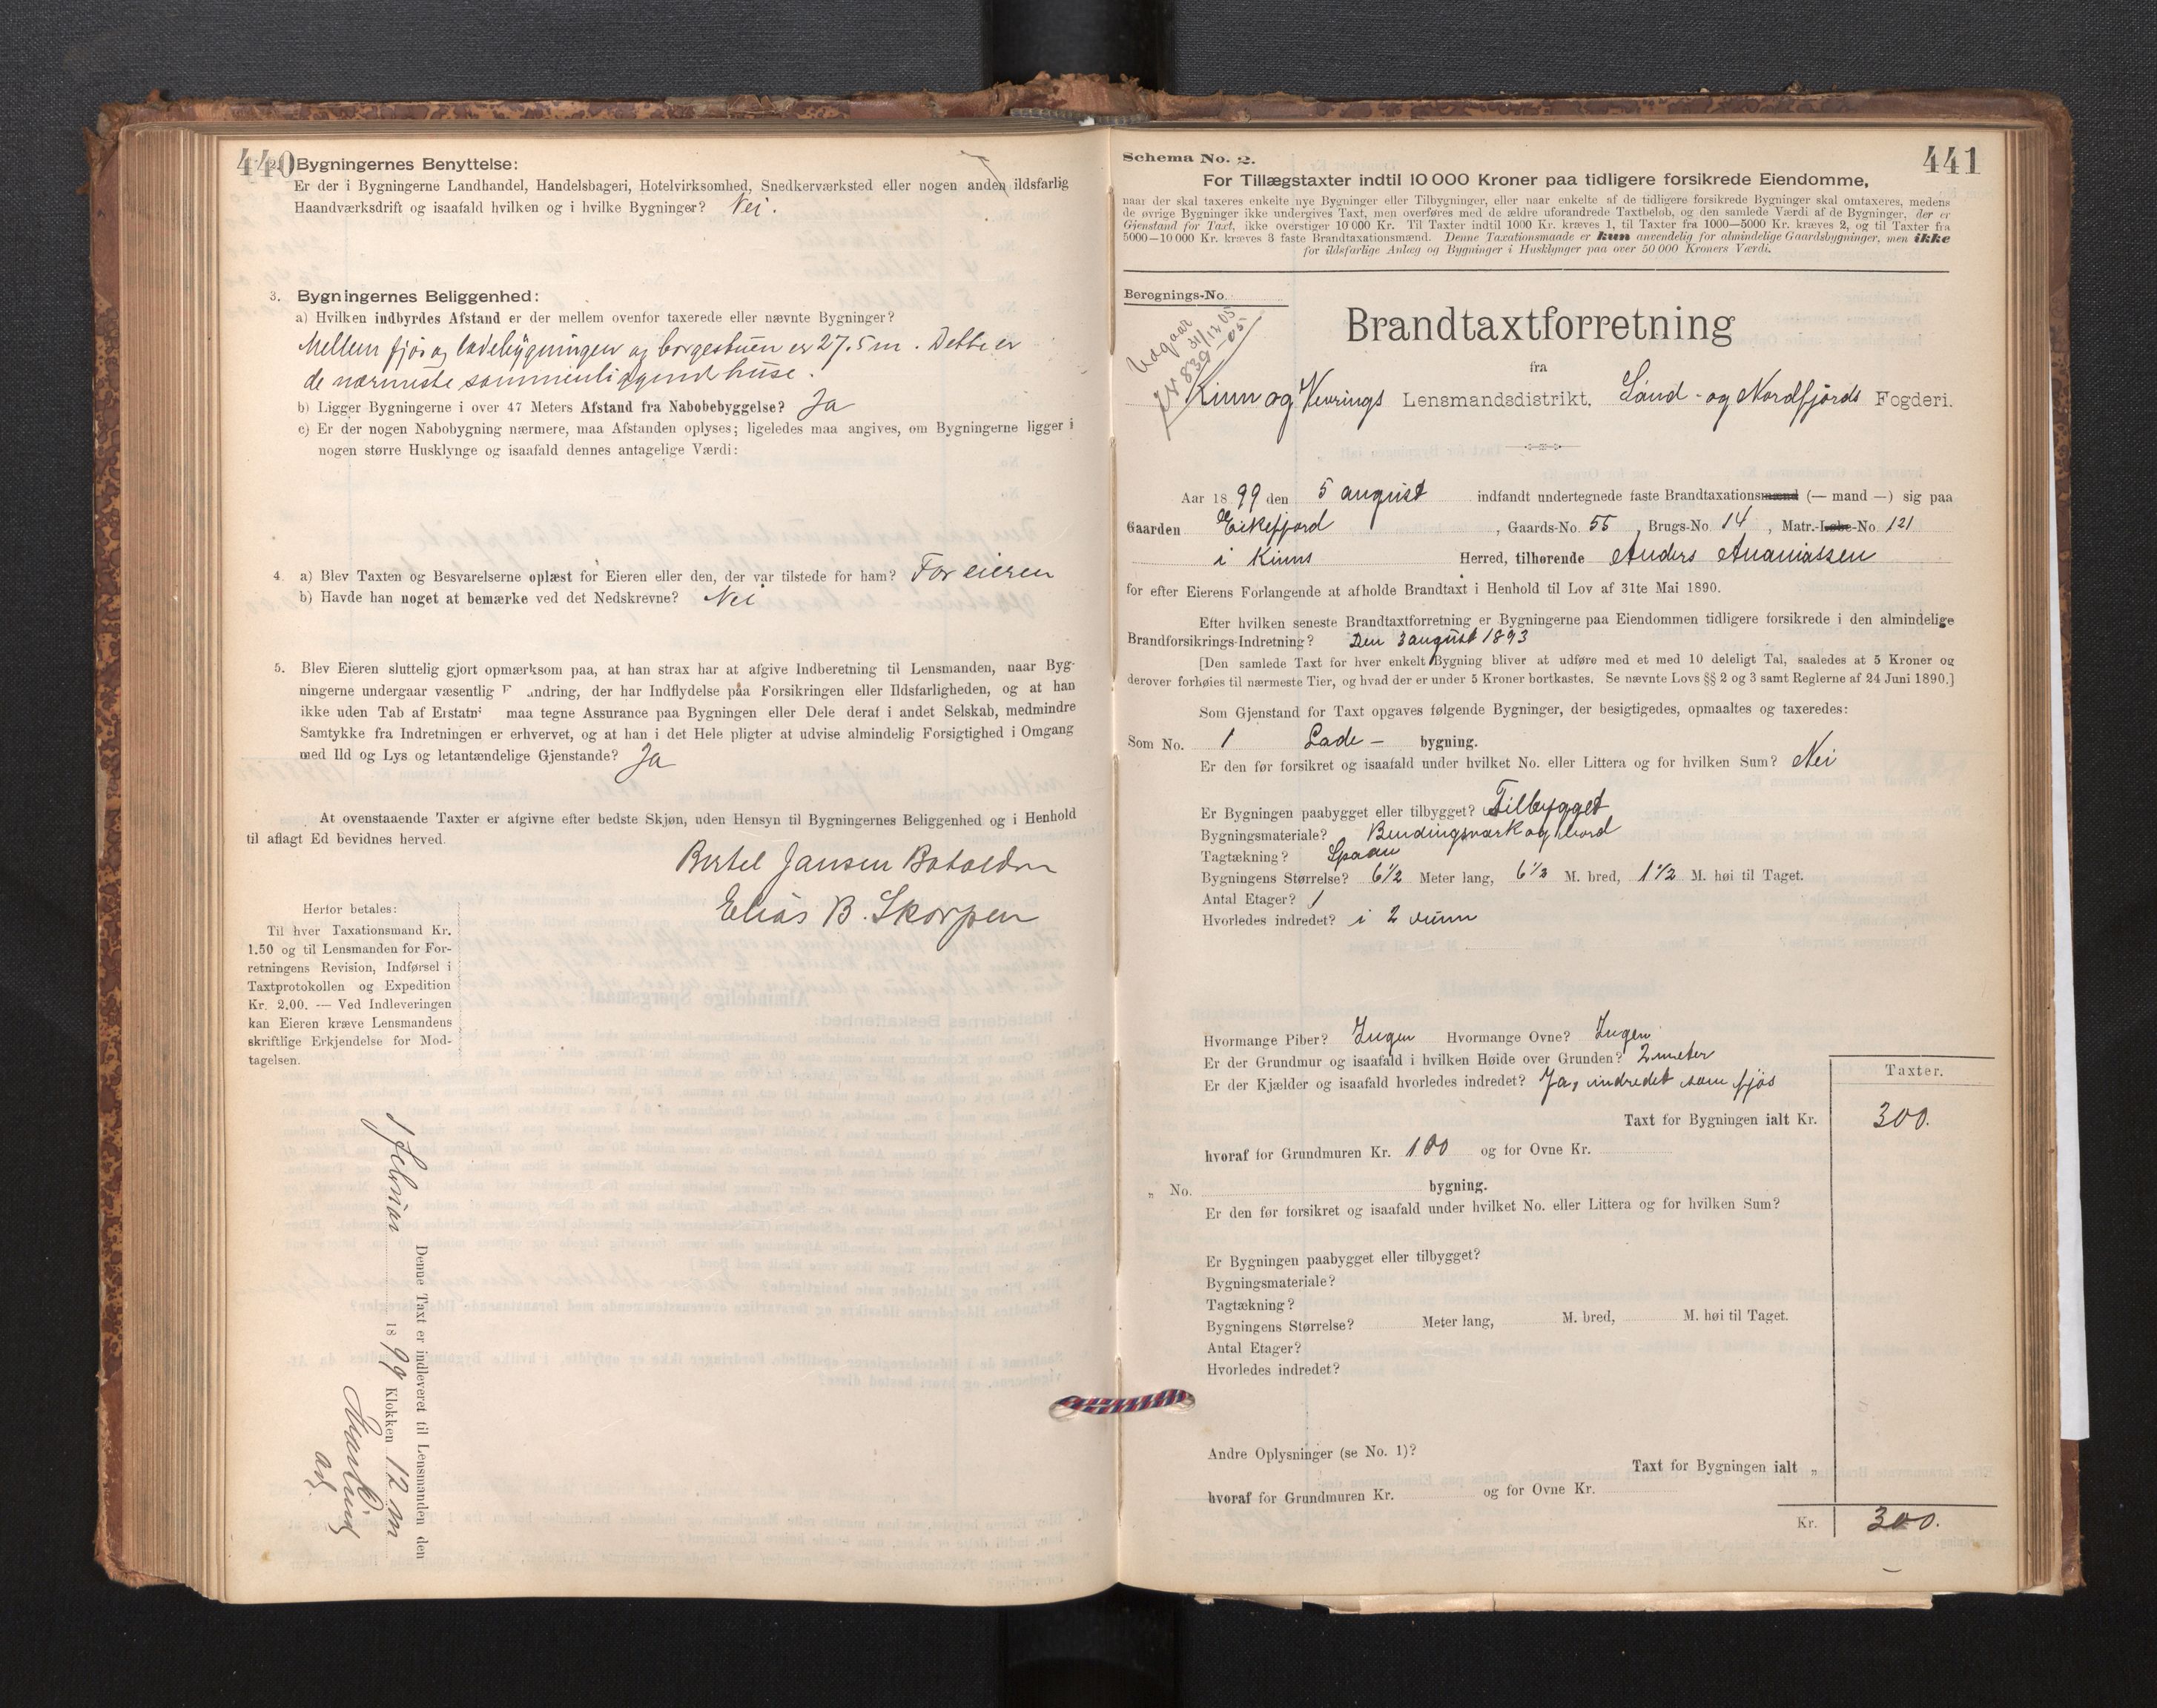 440
2. Bygningernes Benyttelse:
Er der i Bygningerne Landhandel, Handelsbageri, Hotelvirksomhed, Snedkerværksted eller nogen anden ildsfarlig
Haandværksdrift og isaafald hvilken og i hvilke Bygninger? Nei.
3. Bygningernes Beliggenhed:
a) Hvilken indbyrdes Afstand er der mellem ovenfor taxerede eller nævnte Bygninger?
Mellem fjøs og ladebygningen og borgestuen er 27.5 m. Dette er
de nærmeste sammenliggend huse.
b) Ligger Bygningerne i over 47 Meters Afstand fra Nabobebyggelse? Ja
c) Er der nogen Nabobygning nærmere, maa Afstanden oplyses; ligeledes maa angives, om Bygningerne ligger i
nogen større Husklynge og isaafald dennes antagelige Værdi:
4. a) Blev Taxten og Besvarelserne oplæst for Eieren eller den, der var tilstede for ham? For eieren
b) Havde han noget at bemærke ved det Nedskrevne? Nei
5. Blev Eieren sluttelig gjort opmærksom paa, at han strax har at afgive Indberetning til Lensmanden, naar Byg-
ningerne undergaar væsentlig F andring, der har Indflydelse paa Forsikringen eller Ildsfarligheden, og at han
ikke uden Tab af Erstatni maa tegne Assurance paa Bygningen eller Dele deraf i andet Selskab, medmindre
Samtykke fra Indretningen er erhvervet, og at han i det Hele pligter at udvise almindelig Forsigtighed i Omgang
med Ild og Lys og letantændelige Gjenstande? Ja
At ovenstaaende Taxter er afgivne efter bedste Skjøn, uden Hensyn til Bygningernes Beliggenhed og i Henhold
til aflagt Ed bevidnes herved.
Bertel Jansen
Elias B. Skorpen
Herfor betales:
Til hver Taxationsmand Kr.
1.50 og til Lensmanden for For-
retningens Revision, Indførsel i
Taxtprotokollen og Expedition
Kr. 2.00. — Ved Indleveringen
kan Eieren kræve Lensmandens
skriftlige Erkjendelse for Mod-
tagelsen.
Denne Taxt er indleveret til Lensmanden den
1 februar 1899 Klokken 12 m
441
Schema No. 2.
For Tillægstaxter indtil 10 000 Kroner paa tidligere forsikrede Eiendomme,
naar der skal taxeres enkelte nye Bygninger eller Tilbygninger, eller naar enkelte af de tidligere forsikrede Bygninger skal omtaxeres, medens
de øvrige Bygninger ikke undergives Taxt, men overføres med de ældre uforandrede Taxtbeløb, og den samlede Værdi af de Bygninger, der er
Gjenstand for Taxt, ikke overstiger 10 000 Kr. Til Taxter indtil 1000 Kr. kræves 1, til Taxter fra 1000—5000 Kr. kræves 2, og til Taxter fra
5000—10 000 Kr. kræves 3 faste Brandtaxationsmænd. Denne Taxationsmaade er kun anvendelig for almindelige Gaardsbygninger, men ikke
for ildsfarlige Anlæg og Bygninger i Husklynger paa over 50 000 Kroners Værdi.
Beregnings-No.
Udgaar
31/12 05
Brandtaxtforretning
fra
Kinn og Vevrings Lensmandsdistrikt, Sönd- og Nordfjords Fogderi.
Aar 1899 den 5 august indfandt undertegnede faste Brandtaxationsmænd (— mand —) sig paa
Gaarden Eikefjord, Gaards-No. 55, Brugs-No. 14, Matr.-Løbe-No. 121
i Kinns Herred, tilhørende Anders Ananiassen
for efter Eierens Forlangende at afholde Brandtaxt i Henhold til Lov af 31te Mai 1890.
Efter hvilken seneste Brandtaxtforretning er Bygningerne paa Eiendommen tidligere forsikrede i den almindelige
Brandforsikrings-Indretning? Den 3 august 1893
[Den samlede Taxt for hver enkelt Bygning bliver at udføre med et med 10 deleligt Tal, saaledes at 5 Kroner og
derover forhøies til nærmeste Tier, og hvad der er under 5 Kroner bortkastes. Se nævnte Lovs §§ 2 og 3 samt Reglerne af 24 Juni 1890.]
Som Gjenstand for Taxt opgaves følgende Bygninger, der besigtigedes, opmaaltes og taxeredes:
Som No. 1 Lade- bygning.
Er den før forsikret og isaafald under hvilket No. eller Littera og for hvilken Sum? Nei
Er Bygningen paabygget eller tilbygget? Tilbygget
Bygningsmateriale? Bindingsværk og bord
Tagtækning? Spaan
Bygningens Størrelse? 6 1/2 Meter lang, 6 1/2 M. bred, 1 1/2 M. høi til Taget.
Antal Etager? 1
Hvorledes indredet? i 2 rum
Hvormange Piber? Ingen Hvormange Ovne? Ingen
Er der Grundmur og isaafald i hvilken Høide over Grunden? 2 meter
Er der Kjælder og isaafald hvorledes indredet? Ja, indredet som fjøs
Taxter.
Taxt for Bygningen ialt Kr. 300.
hvoraf for Grundmuren Kr. 100 og for Ovne Kr.
„ No. bygning.
Er den før forsikret og isaafald under hvilket No. eller Littera og for hvilken Sum?
Er Bygningen paabygget eller tilbygget?
Bygningsmateriale?
Tagtækning?
Bygningens Størrelse? Meter lang, M. bred, M. høi til Taget.
Antal Etager?
Hvorledes indredet?
Andre Oplysninger (se No. 1)?
Taxt for Bygningen ialt „
hvoraf for Grundmuren Kr. og for Ovne Kr.
Kr. 300.